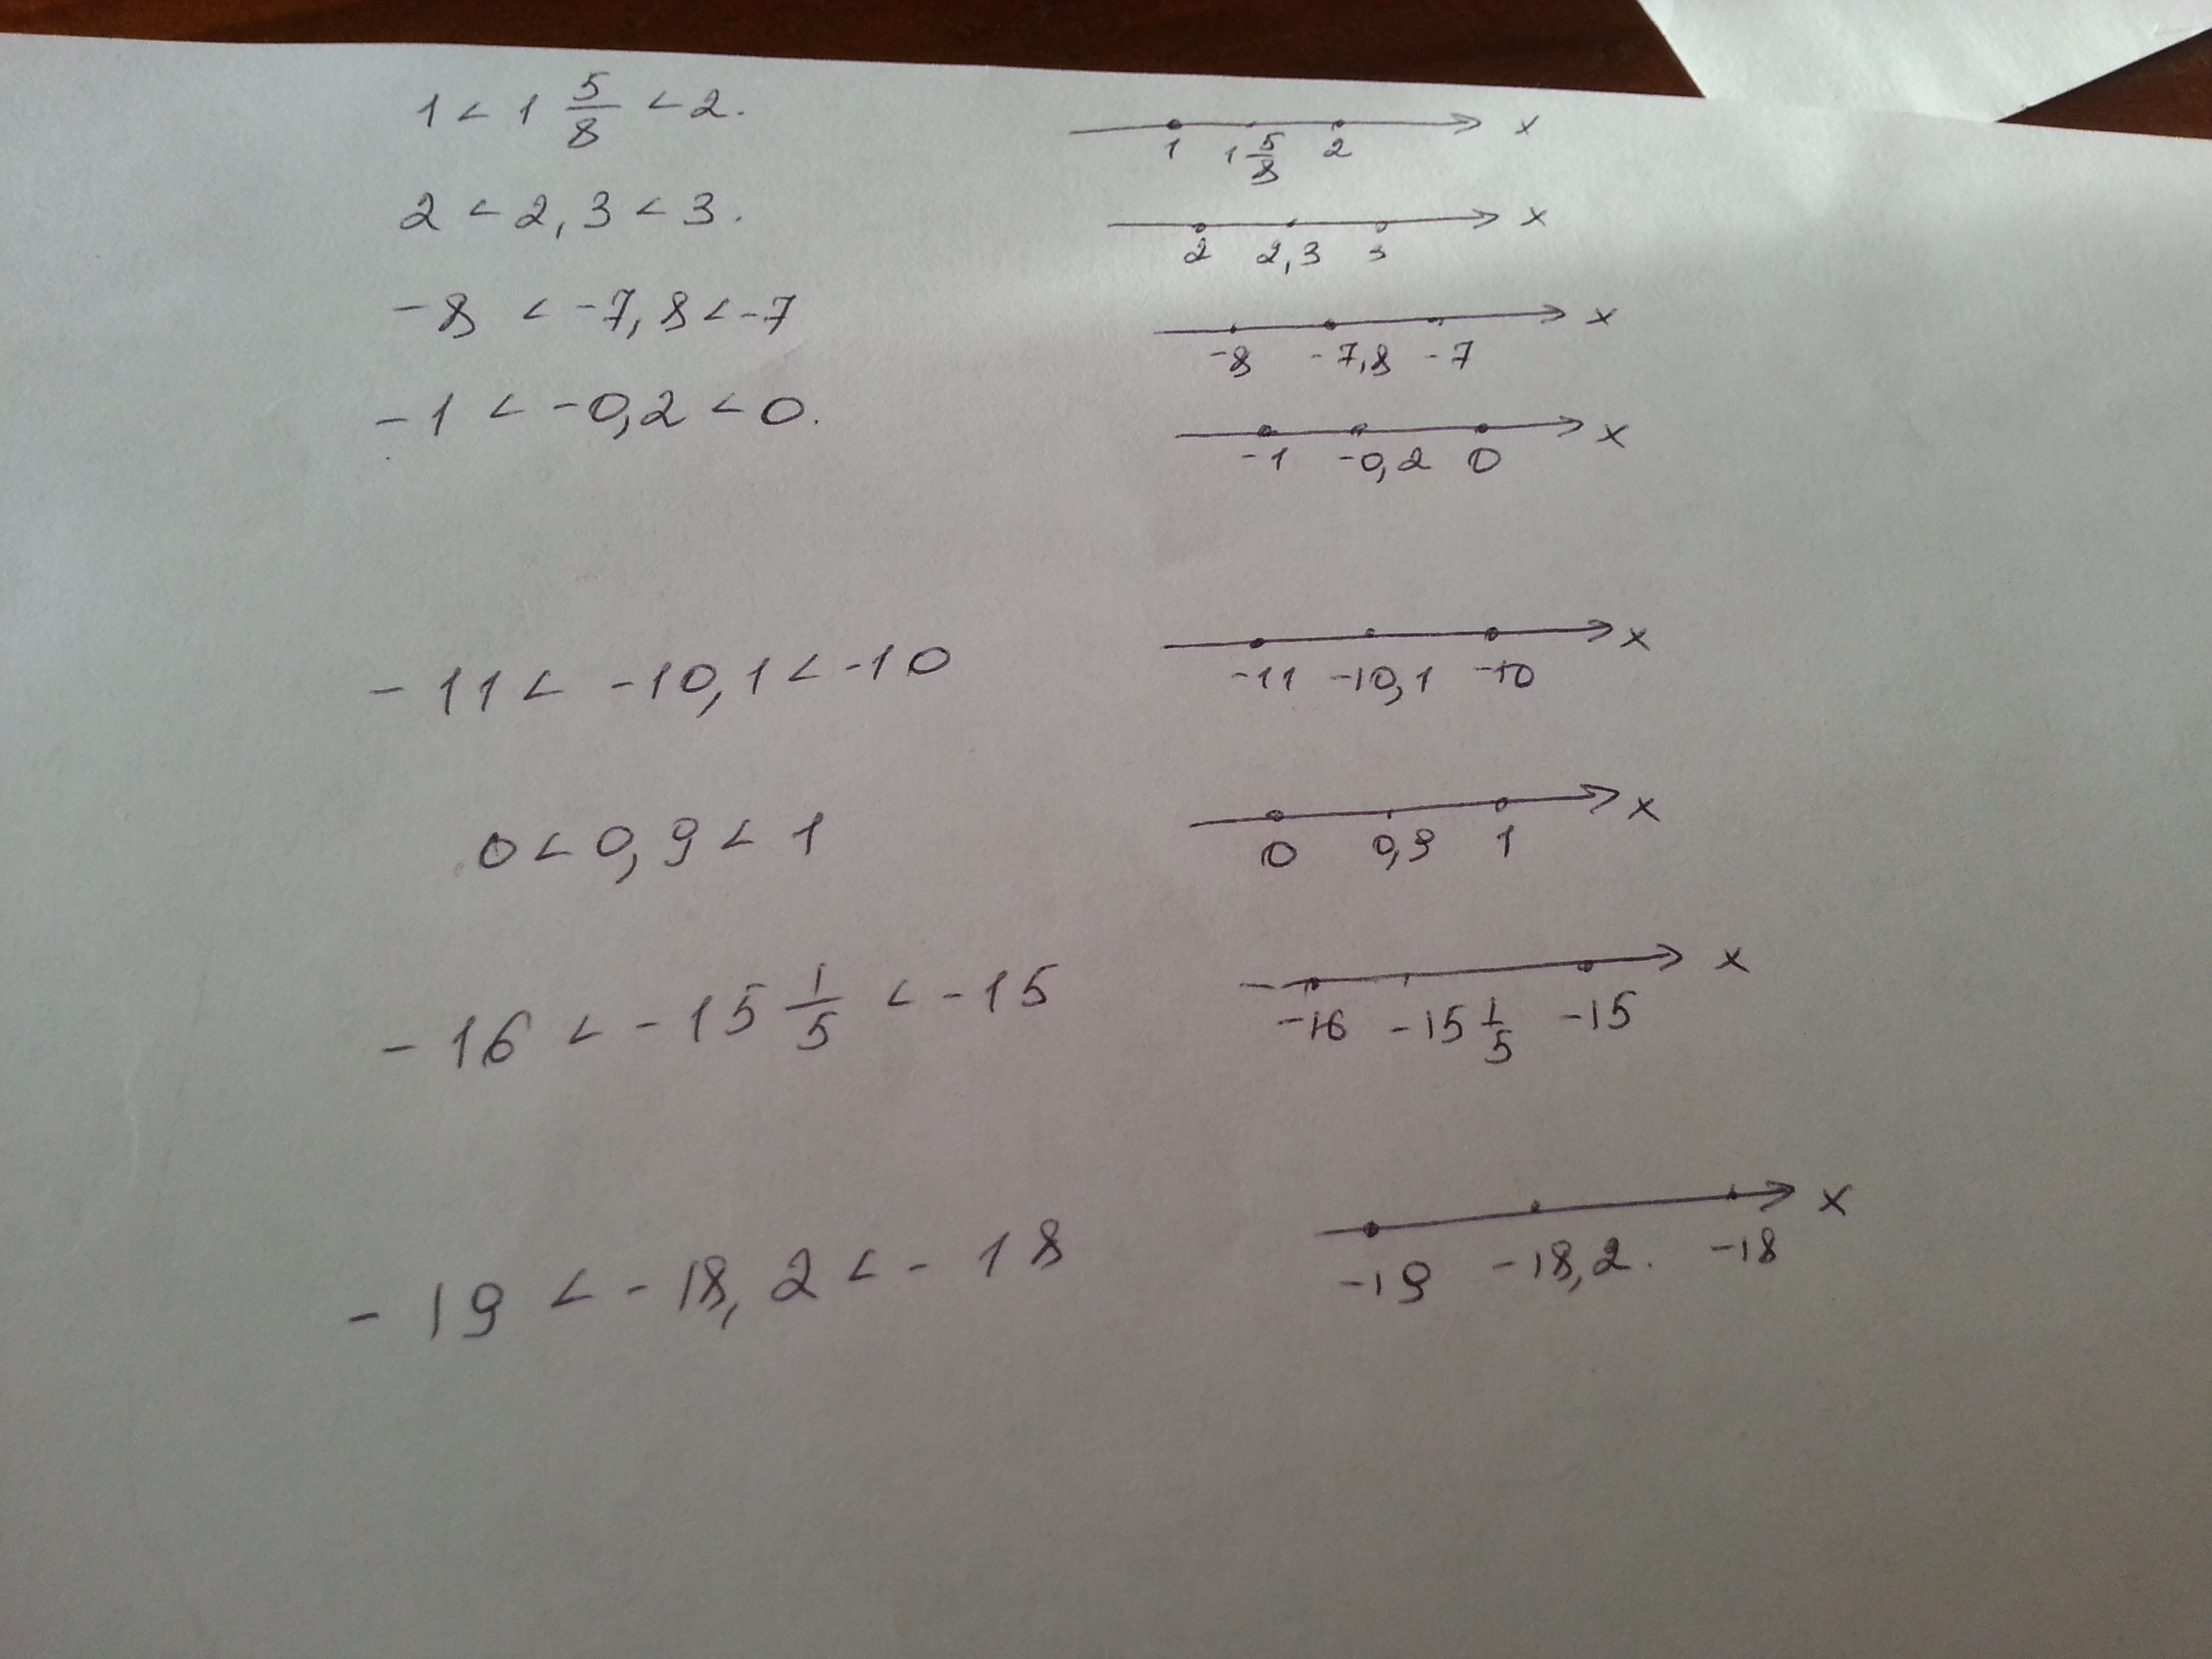 1 < 1 5/8 < 2.
1 1 5/8 2 x
2 < 2,3 < 3.
2 2,3 3 x
-8 < -7,8 < -7
-8 -7,8 -7 x
-1 < -0,2 < 0.
-1 -0,2 0 x
-11 < -10,1 < -10
-11 -10,1 -10 x
0 < 0,9 < 1
0 0,9 1 x
-16 < -15 1/5 < -15
-16 -15 1/5 -15 x
-19 < -18,2 < -18
-19 -18,2. -18 x